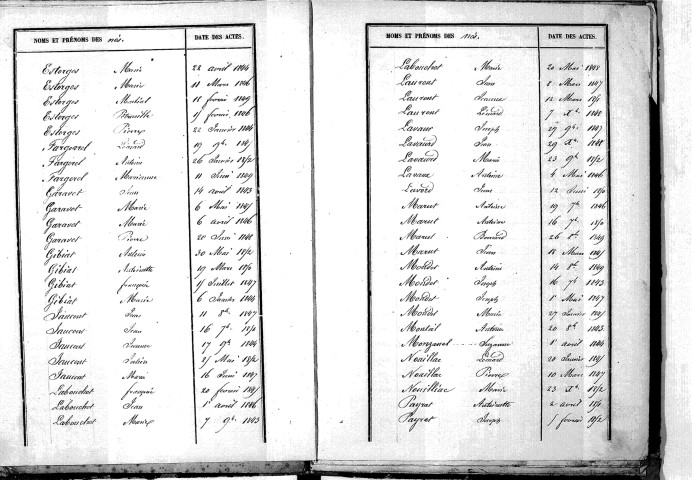 NOMS ET PRÉNOMS DES nés. DATE DES ACTES.
Estorges Marie 22 avril 1844
Estorges Marie 11 Mars 1846
Estorges Martial 18 février 1849
Estorges 15 février 1846
Estorges Pierre 22 Janvier 1844
Fargerel Léonard 19 9bre
Fargerel Antoine 26 Janvier 1852
Fargerel Marianne 11 Juin 1849
Garavet Jean 14 avril 1843
Garavet Marie 6 Mai 1845
Garavet Marie 6 avril 1846
Garavet Pierre 20 Juin 1848
Gibiat Antoine 30 Mai 1852
Gibiat Antoinette 19 Mars
Gibiat françois 15 Juillet 1847
Gibiat Marie 6 Janvier 1844
Jaucent Jean 11 8bre 1847
Jaucent Jean 16 7bre 1850
Jaucent Jeanne 17 9bre 1844
Jaucent Julien 25 Mai 1852
Jaucent Marie 16 Juin 1847
Labouchet françois 20 février
Labouchet Jean 1er avril 1846
Labouchet 7 9bre 1843
NOMS ET PRÉNOMS DES nés. DATE DES ACTES.
Labouchet Marie 20 Mai 1848
Laurent Jean 8 Mars 1847
Laurent Jeanne 12 Mars
Laurent Léonard 7 Xbre 1848
Lavaur Joseph 29 9bre 1847
Lavaurd Jean 29 Xbre 1848
Lavaurd Marie 23 9bre 1852
Lavaur Antoine 4 Mai 1846
Lavard 12 Juin 1850
Marut Antoine 19 7bre 1846
Marut Antoine 16 7bre 1850
Marut Bernard 26 8bre 1849
Marut Jean 18 Mars
Mondet Antoine 14 8bre 1849
Mondet Joseph 16 7bre 1843
Mondet Joseph 1er Mai 1847
Mondet Marie 27 Janvier
Monteil Antoine 20 8bre 1843
Morganel Suzanne 1er avril 1844
Noaillac Léonard 20 Janvier
Noaillac Pierre 10 Mars 1847
Nouilliac Marie 23 Xbre 1852
Payrat Antoinette 2 avril
Payrat Joseph 5 février 1852